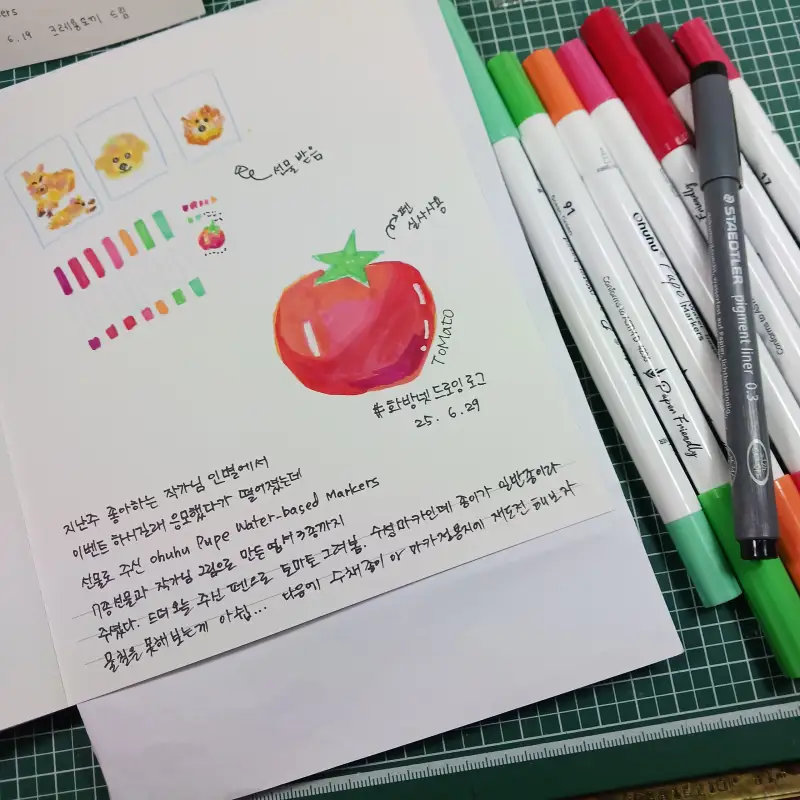 6.19 크레용토끼 드림
선물 받음
펜
실사사용
TOMATO
#화방넷드로잉로그
25. 6. 29
지난주 좋아하는 작가님 인별에서
이벤트 하시길래 응모했다가 떨어졌는데
선물로 주신 Ohuhu Pupe Water-based Markers
7종선물과 작가님 그림으로 만든 엽서3종까지
주셨다. 드뎌 오늘 주신 펜으로 토마토 그려봄. 수성마카인데 종이가 일반종이라
물칠을 못해보는게 아쉽... 다음에 수채종이 아 마카전용지에 재도전 해보자
91
Ohuhu
Pupe
Markers
Conforms to ASTM D
Paper Friendly
Friendly
STAEDTLER pigment liner 0.3
17
Conforms to AS